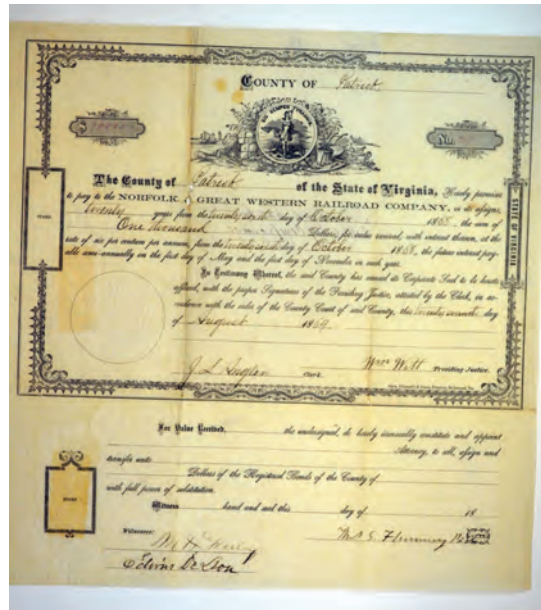 COUNTY OF Patrick
SIC SEMPER TYRANNIS
No.
The County of Patrick of the State of Virginia, Hereby promise
to pay to the NORFOLK & GREAT WESTERN RAILROAD COMPANY, or its assigns,
twenty years from the day of October 1868, the sum of
One thousand Dollars, for value received, with interest thereon, at the
rate of six per centum per annum, from the day of October 1868, the future interest pay-
able semi-annually on the first day of May and the first day of November in each year.
In Testimony Whereof, the said County has caused its Corporate Seal to be hereto
affixed, with the proper Signatures of the Presiding Justice, attested by the Clerk, in ac-
cordance with the order of the County Court of said County, this twenty seventh day
of August 1869.
CLERK
Wm Witt Presiding Justice.
STATE OF VIRGINIA
STAMP
For Value Received, the undersigned, do hereby irrevocably constitute and appoint
Attorney, to sell, assign and
transfer unto
Dollars of the Registered Bonds of the County of
with full power of substitution.
Witness hand and seal this day of 18
STAMP
Witnesses:
Edwin De Leon